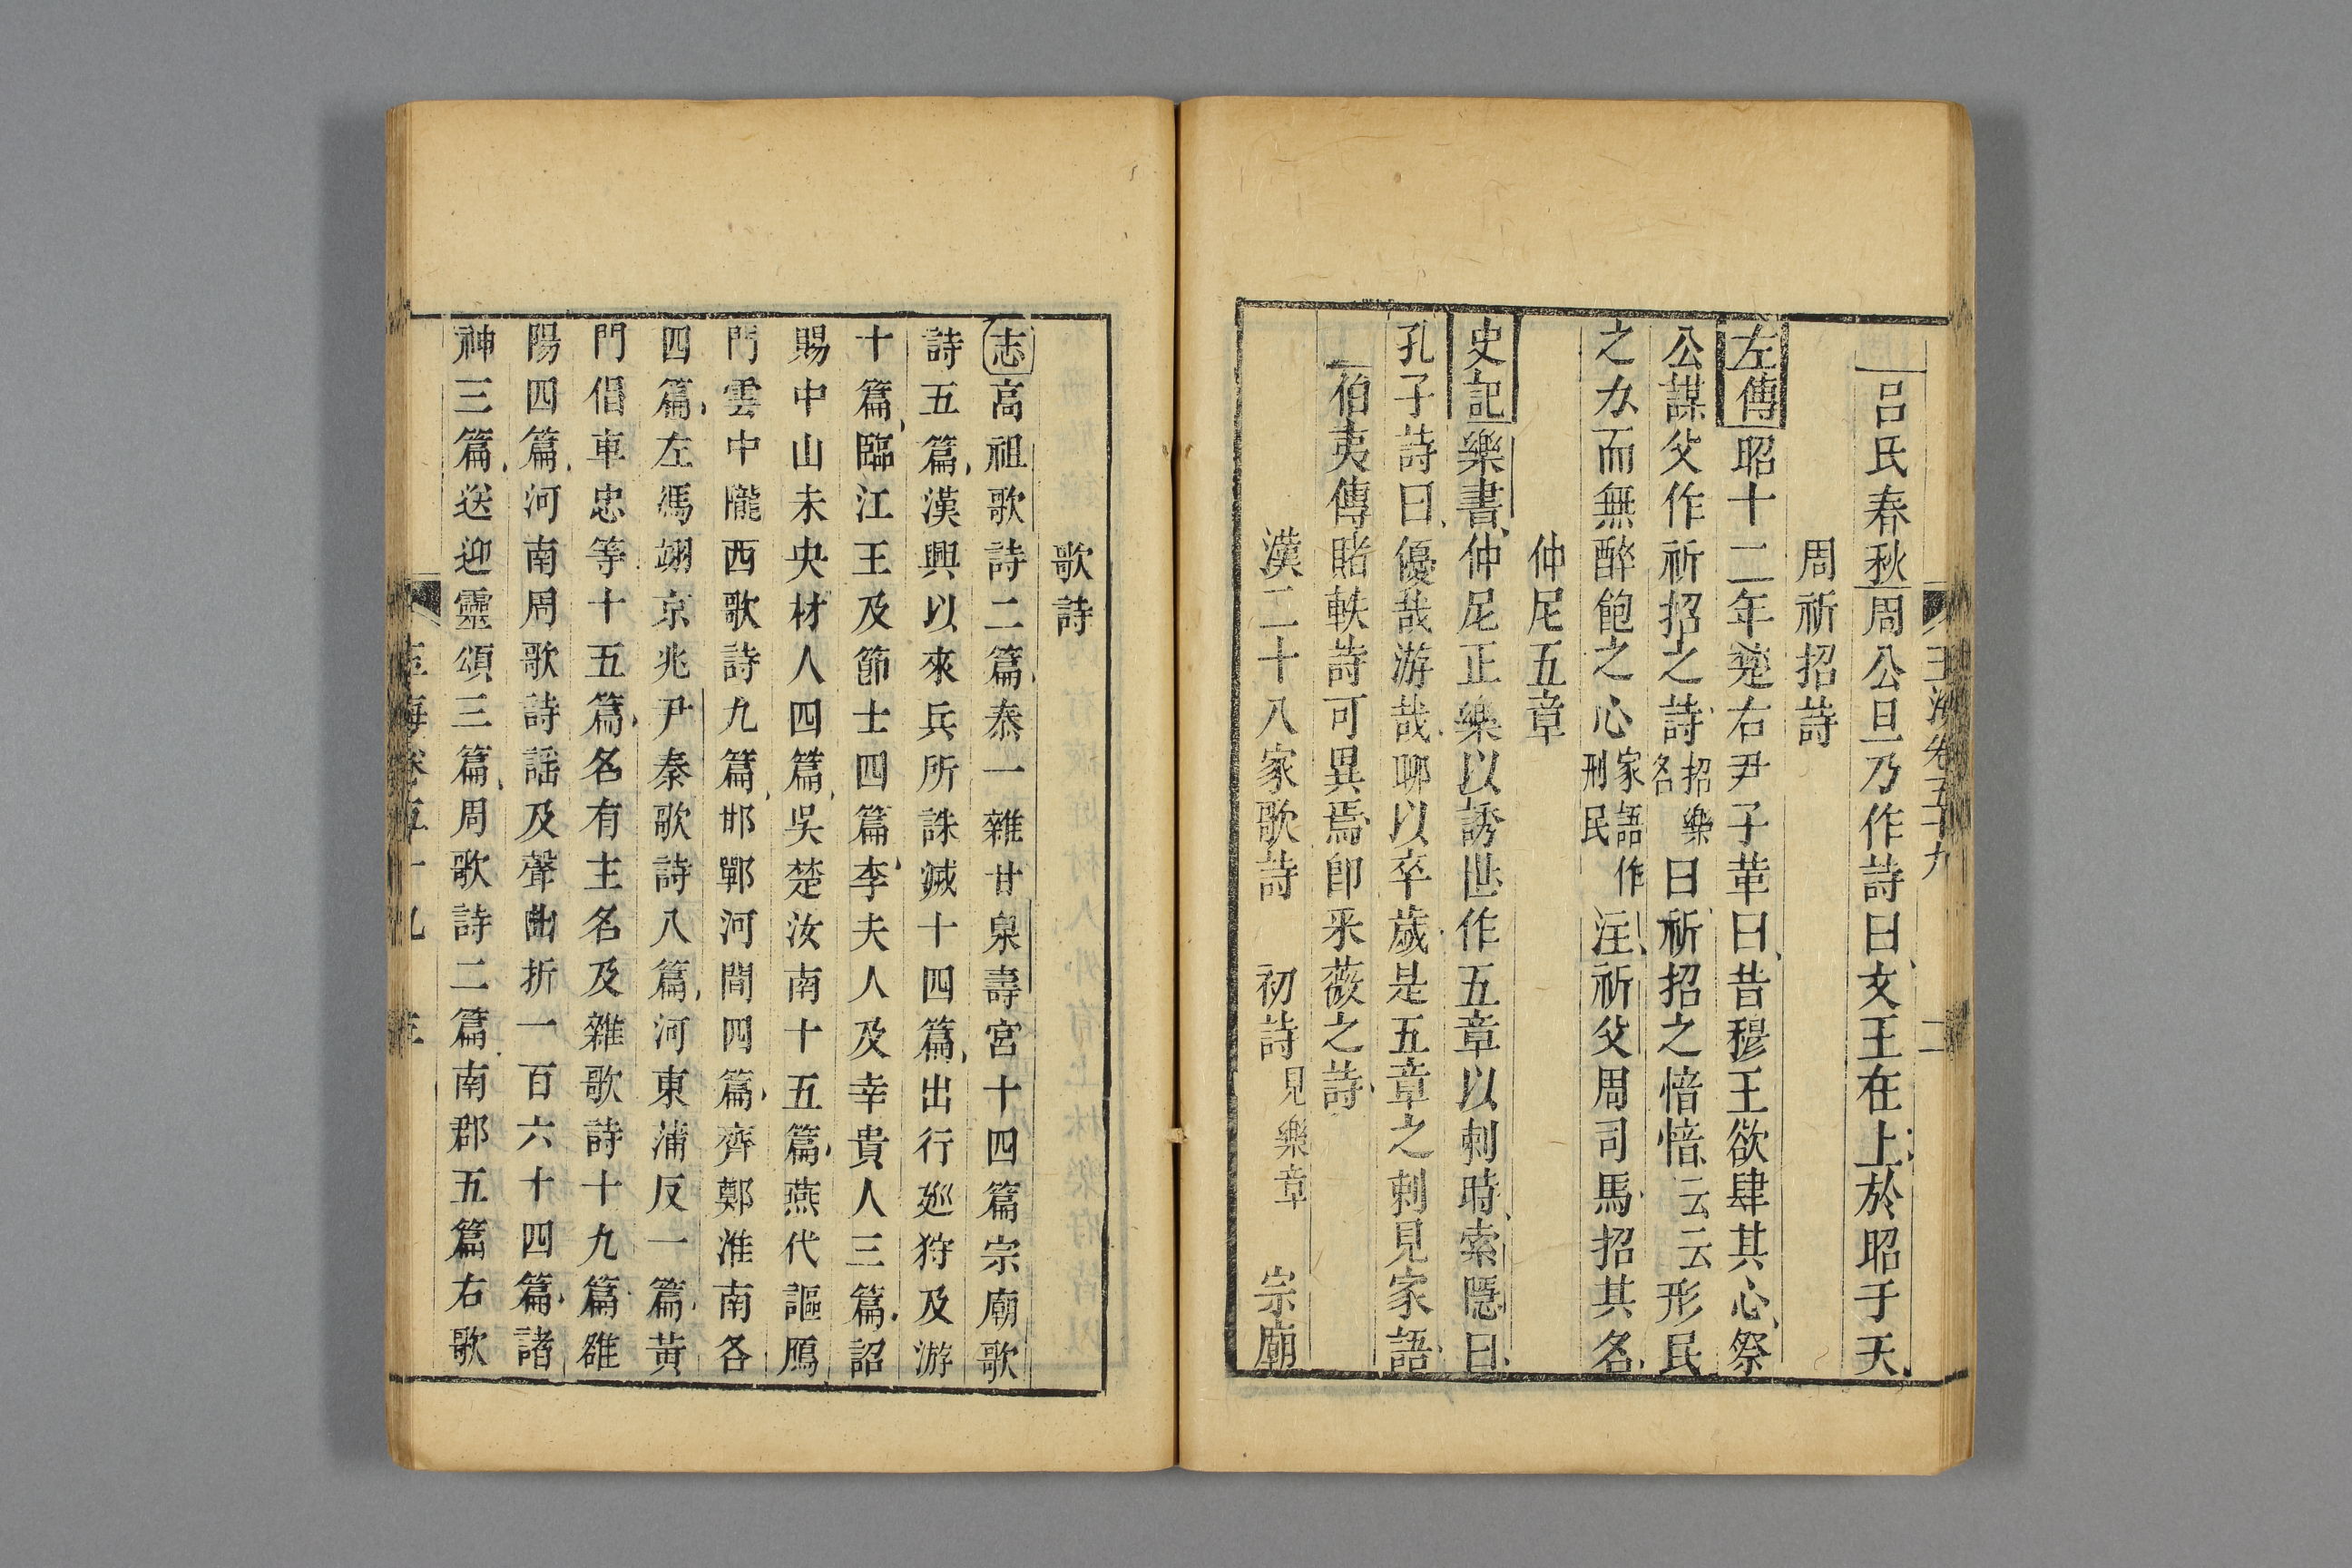 玉海卷五十九　二
呂氏春秋周公旦乃作詩曰文王在上於昭于天
周祈招詩
左傳昭十二年楚右尹子革曰昔穆王欲肆其心祭
公謀父作祈招之詩招樂名曰祈招之愔愔云云形民
之力而無醉飽之心家語作刑民注祈父周司馬招其名
仲尼五章
史記樂書仲尼正樂以誘世作五章以刺時索隱曰
孔子詩曰優哉游哉聊以卒歲是五章之刺見家語
伯夷傳睹軼詩可異焉卽采薇之詩
漢二十八家歌詩　初詩見樂章　宗廟
歌詩
志高祖歌詩二篇泰一雜甘泉壽宮十四篇宗廟歌
詩五篇漢興以來兵所誅滅十四篇出行廵狩及游
十篇臨江王及節士四篇李夫人及幸貴人三篇詔
賜中山未央材人四篇吳楚汝南十五篇燕代謳鴈
門雲中隴西歌詩九篇邯鄲河間四篇齊鄭淮南各
四篇左馮翊京兆尹秦歌詩八篇河東蒲反一篇黃
門倡車忠等十五篇名有主名及雜歌詩十九篇雒
陽四篇河南周歌詩謡及聲曲折一百六十四篇諸
神三篇送迎靈頌三篇周歌詩二篇南郡五篇右歌